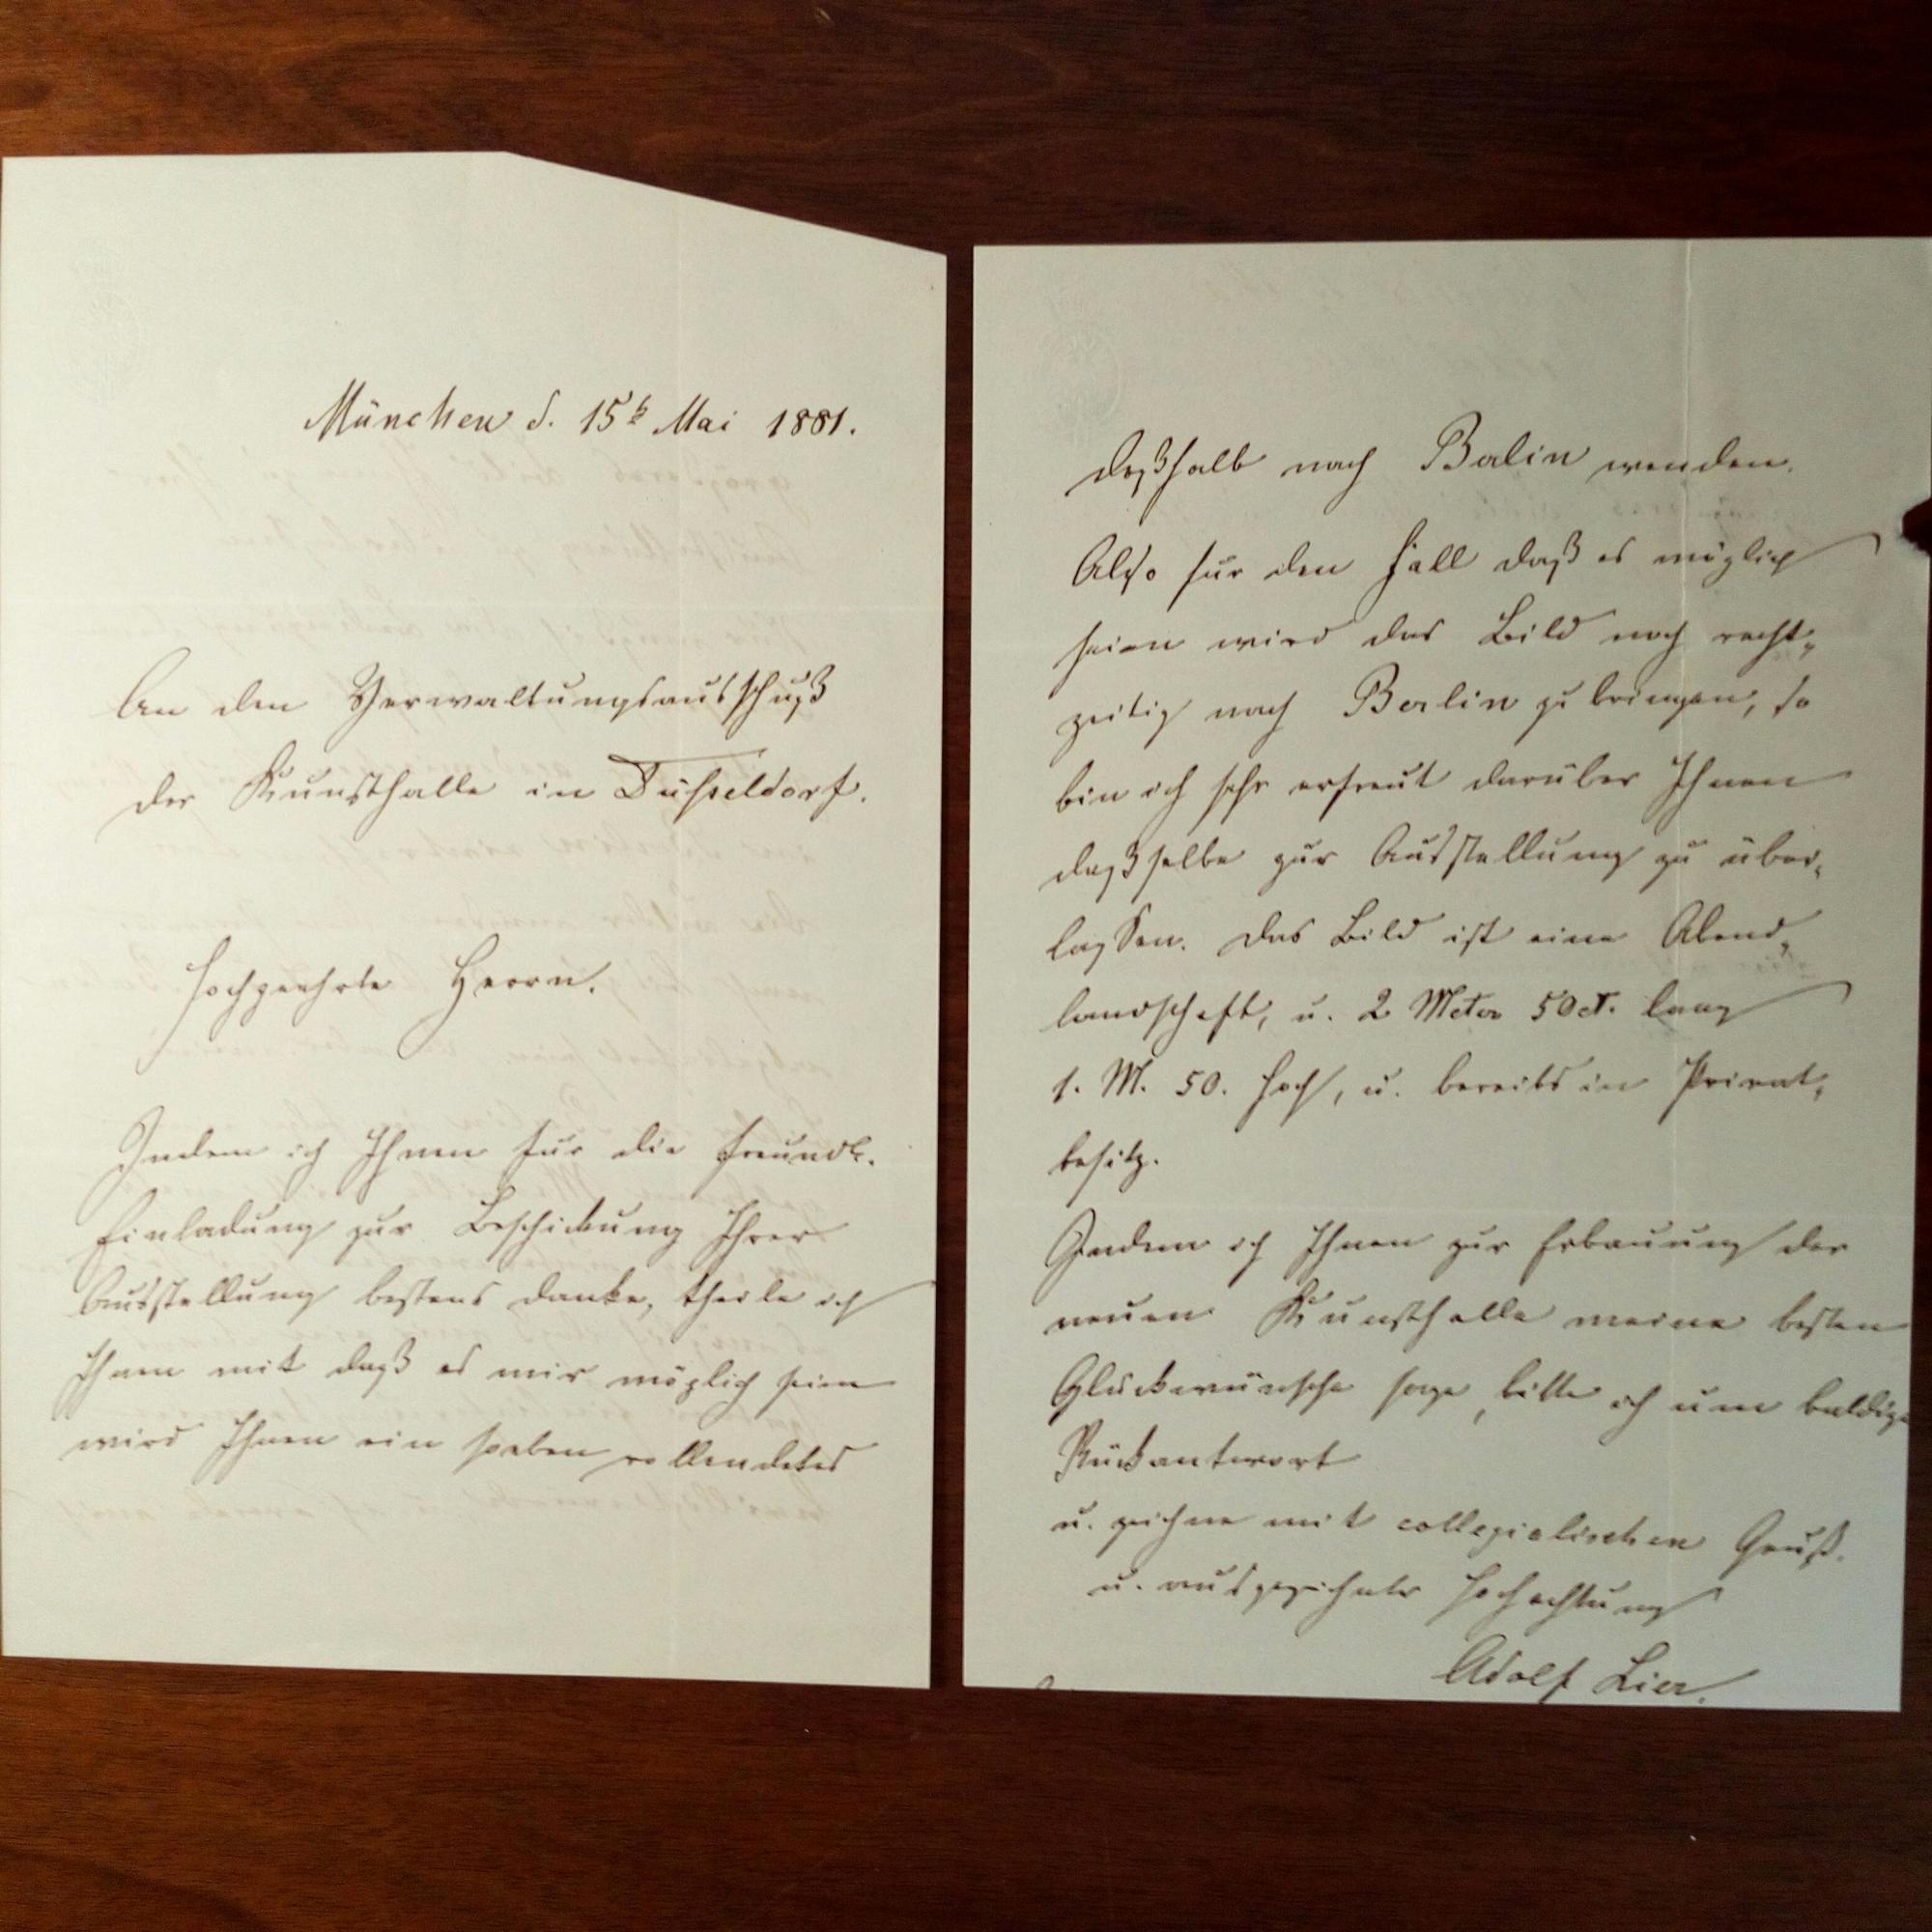 München d. 15t Mai 1881.
An den Verwaltungsausschuß
der Kunsthalle in Düsseldorf.
Hochgeehrte Herrn.
Indem ich Ihnen für die freundl.
Einladung zur Beschickung Ihrer
Ausstellung bestens danke, theile ich
Ihnen mit daß es mir möglich sein
wird Ihnen ein soeben vollendetes
deßhalb nach Berlin wenden.
Also für den Fall daß es möglich
seien wird das Bild noch recht-
zeitig nach Berlin zu bringen, so
bin ich sehr erfreut darüber Ihnen
daßselbe zur Ausstellung zu über-
lassen. Das Bild ist eine Abend-
landschaft, u. 2 Meter 50ct. lang
1. M. 50. hoch, u. bereits in Privat-
besitz.
Indem ich Ihnen zur Erbauung der
neuen Kunsthalle meine besten
Glückwünsche sage, bitte ich um baldige
Rückantwort
u. zeichne mit collegialischen Gruß.
u. ausgezeichneter Hochachtung
Adolf Lier.